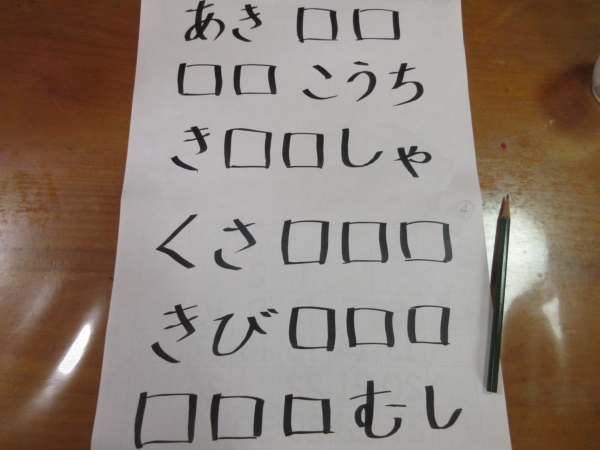 あき□□
□□こうち
き□□しゃ
くさ□□□
きび□□□
□□□むし